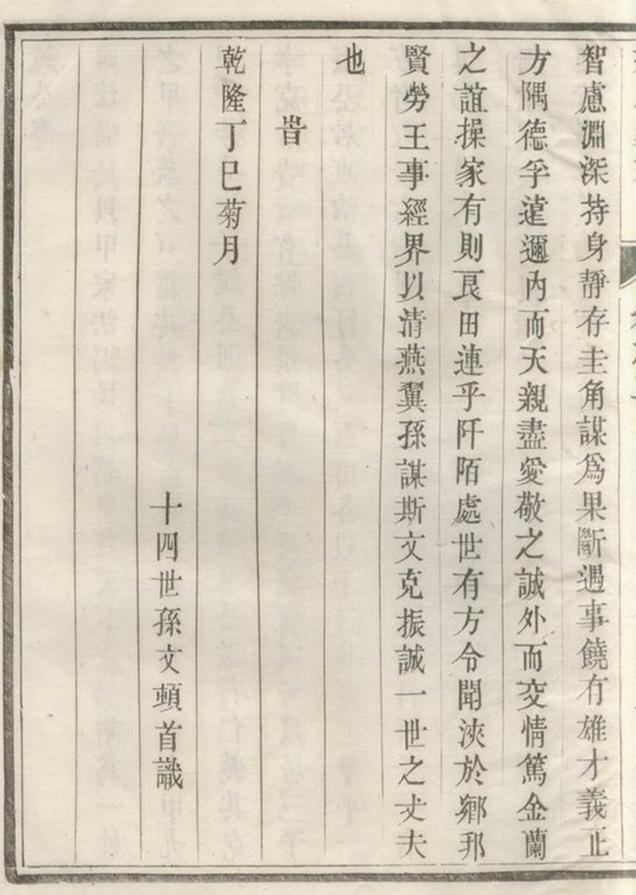 智慮淵深持身靜存圭角謀為果斷遇事饒有雄才義正
方隅德孚遠邇內而天親盡愛敬之誠外而交情篤金蘭
之誼操家有則良田連乎阡陌處世有方令聞浹於鄉邦
賢勞王事經界以清燕翼孫謀斯文克振誠一世之丈夫
也
旹
乾隆丁巳菊月
十四世孫文頓首識